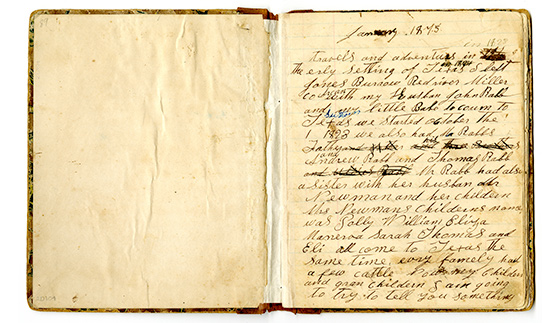 January 1875
travels and adventurs in
the erly setling of Texas I left
Jones Burow Redriver Miller
Co with my husban John Rabb
and my little Babe to cum to
Texas we started October the
1 1823 we also had Mr Rabbs
Father
Andrew Rabb and Thomas Rabb
Mr Rabb had also
a sister with her husban Mr
Newman and her childern
Mrs Newmans Childerns names
was Polly William Eliza
Manerva Sarah Thomas and
Eli all come to Texas the
same time. evry famely had
a few cattle my childern
and gran childern I am going
to try to tell you something